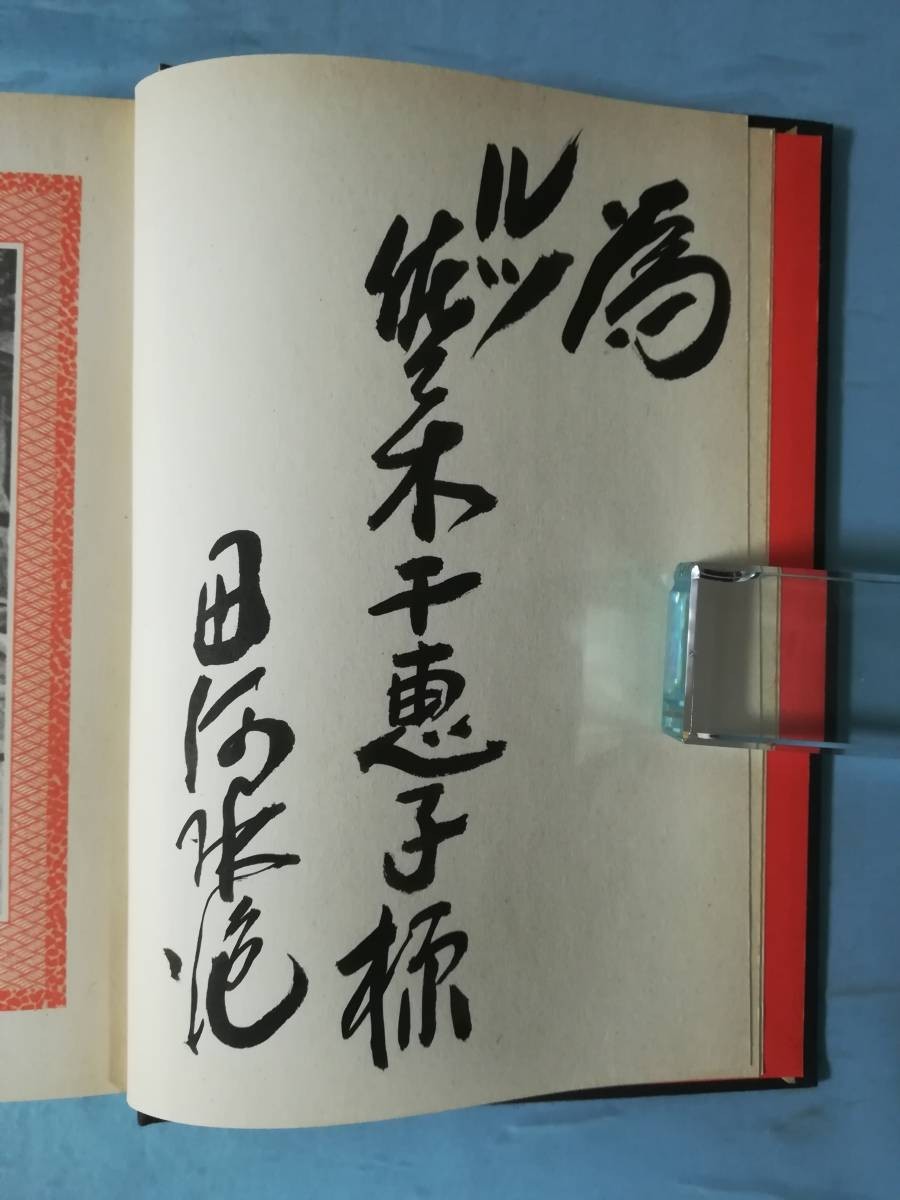 為
ルツ
佐々木千恵子様
田河水泡